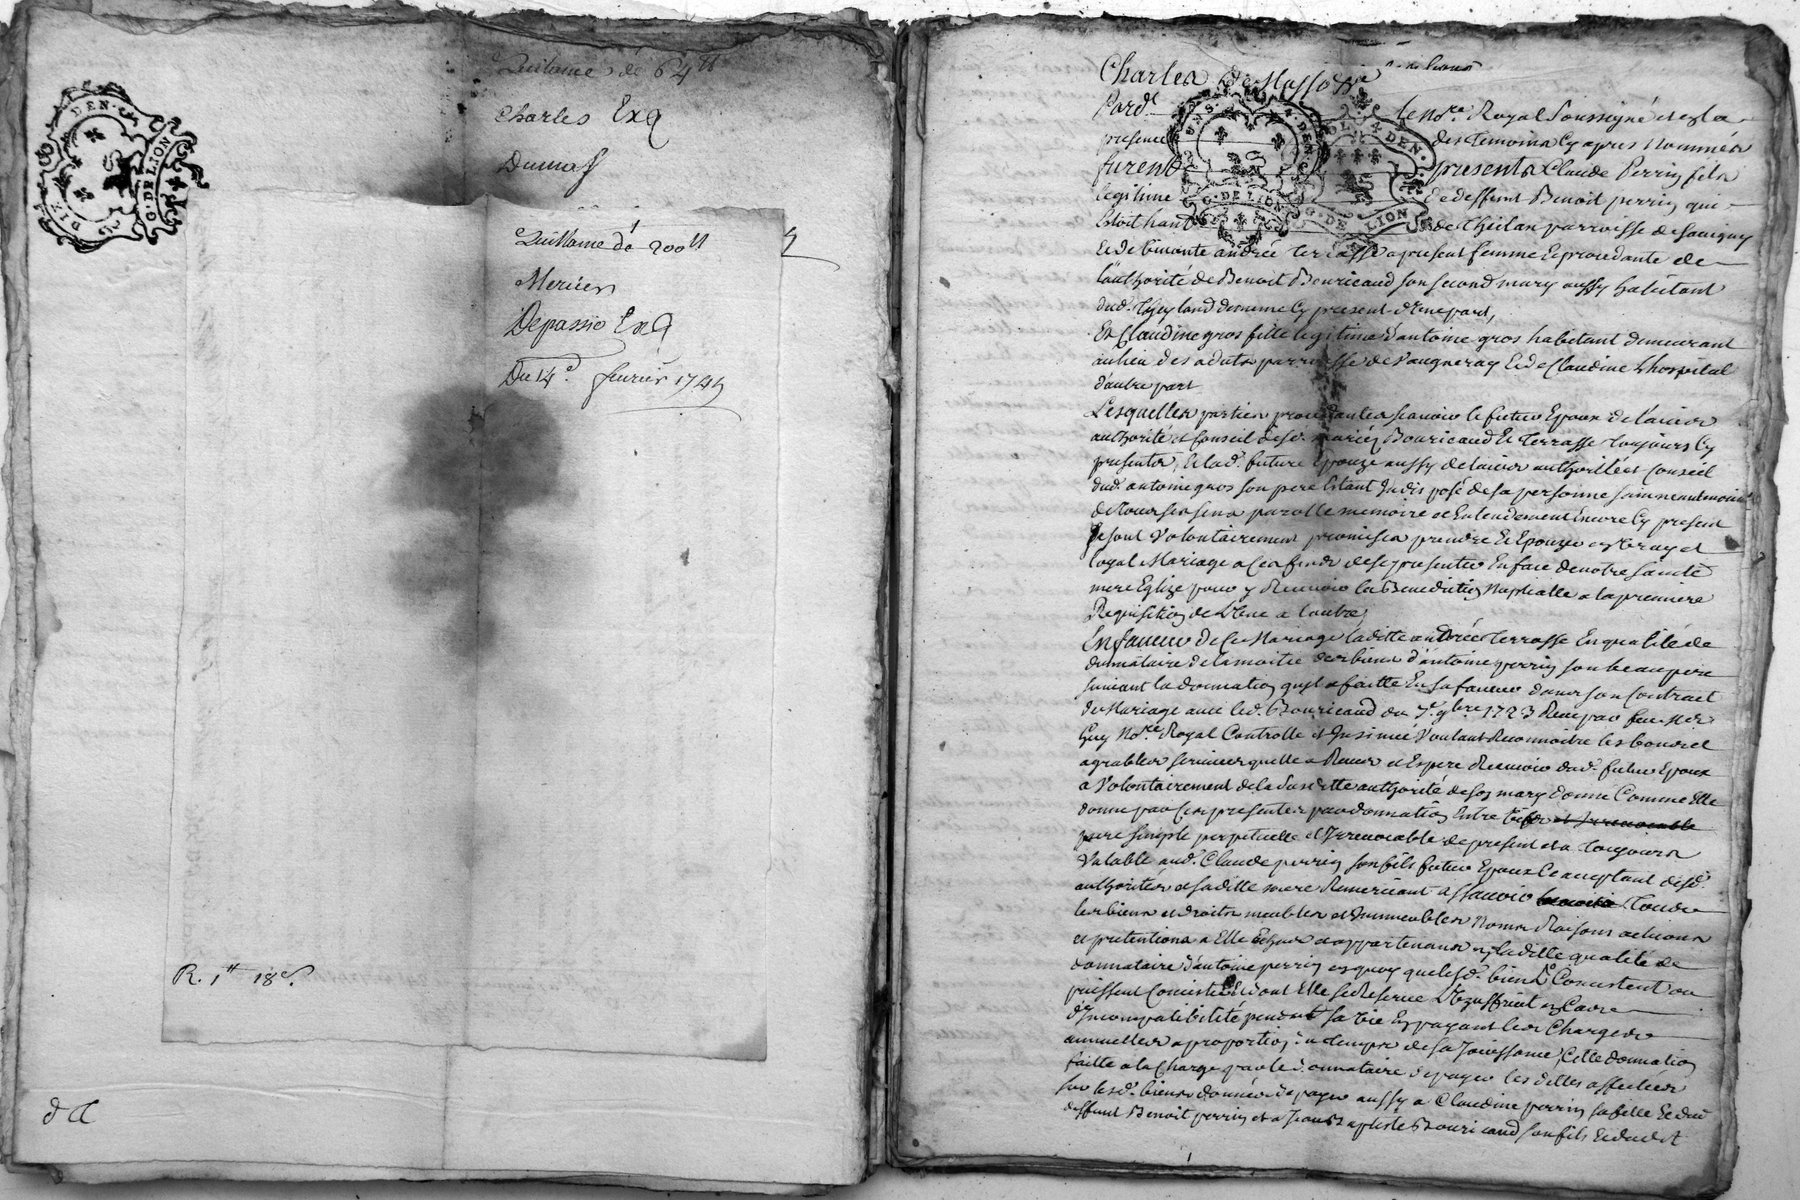 DIE DEN
G. DE LION
Quittance de 64ᵗᵗ
Charles Exp
Dumas
Quittance de 200ᵗᵗ
Mercier
Depassio Exp
Du 14ᵉ. feurier 1745
R. 1ᵗᵗ 18ˢ.
Charles de Masso
Pardᵗ le noʳᵉ Royal Soussigné et en la
presence des temoins cy apres nommés
furent presents Claude Perrin fils
legitime de deffunt Benoit perrin qui
estoit hant de Theilan parroisse de Sauigny
et de viuante andrée terrasse a present femme et procedante de
l'authorite de Benoit Bouricaud son second mary aussy habitant
dud. Theyland dememe cy present d'une part,
Et Claudine gros fille legitime d'antoine gros habitant demeurant
au lieu des aduts parroisse de Vaugneray et de Claudine Lhospital
d'autre part
Lesquelles parties procedantes scauoir le futur Epoux de l'auis
authorité et Conseil desd. mariés Bouricaud et Terrasse toujours cy
presents, et lad. future Epouze aussy de l'auis authorité et Conseil
dud. antoine gros son pere Estant Indisposé de sa personne sain neantmoins
de tous ses sens parolle memoire et Entendement Encore cy present
se sont Volontairement promis se prendre et Epouzer en vray et
loyal Mariage a ces fins de se presenter En face de notre sainte
mere Eglize pour y Receuoir la Benediction Nuptialle a la premiere
Requisition de L'une a l'autre,
En faueur de ce Mariage laditte andrée terrasse En qualité de
donnataire de la moitié des biens d'antoine perrin son beau pere
suiuant la donnation qu'il a faitte En sa faueur dans son Contract
de Mariage auec led. Bouricaud du 7ᵉ. 9bre 1723 Receu par feu Mᵉ
Guy Noʳᵉ Royal Controllé et Insinué Voulant Reconnoitre les bons et
agreables seruices quelle a Receus et Espere Receuoir dud. futur Epoux
a Volontairement de la Susditte authorité de son mary donné Comme Elle
donne par ces presentes par donnation Entre vifs et Irreuocable
pure simple perpetuelle et Irreuocable de present et a toujours
Valable aud. Claude perrin son fils futur Epoux Ce acceptant desd.
authorités et saditte mere Remerciant a scauoir la moitié tous
les biens et droits meubles et Immeubles Noms Raisons actions
et pretentions a Elle Echus et appartenans en laditte qualité de
donnataire d'antoine perrin en quoy que lesd. biens Consistent ou
puissent Consister Et dont Elle se Reserue L'Uzuffruit en Cas
d'Incompatibilité pendant sa vie En payant les Charges
annuelles a proportion du temps de sa Jouissance, Cette donnation
faitte a la Charge par le donnataire de payer les dettes affectées
sur lesd. biens donnés de payer aussy a Claudine perrin sa fille et dud
deffunt Benoit perrin et a Jean Baptiste Bouricaud son fils et dudit